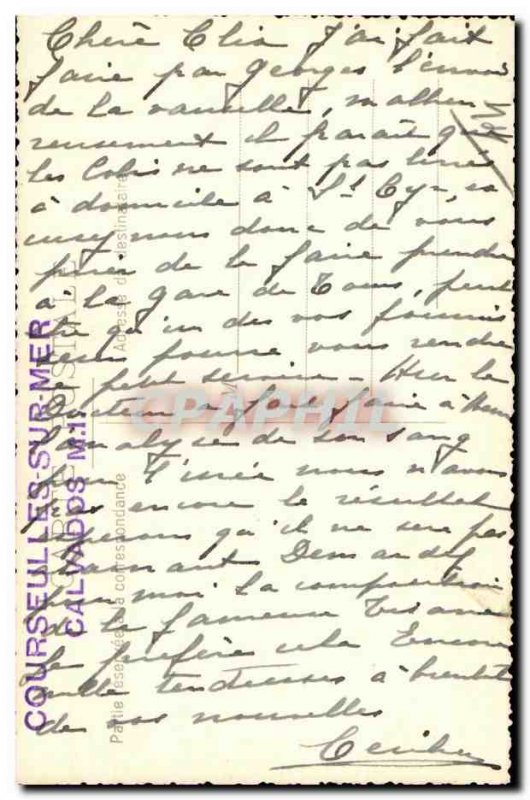 Chère Clia J'ai fait
faire par Georges l'envoi
de la vaisselle, malheu
reusement il paraît que
les colis ne sont pas livrés
à domicile à St Cyr, ex
cusez nous donc de vous
prier de le faire prendre
à la gare de Tours, peut
être qu'un des vos fournis
seurs pourra vous rendre
ce petit service - Hier le
Docteur a fait faire à
l'analyse de son sang
pour l'urée nous n'avons
pas encore le résultat
espérons qu'il ne sera pas
alarmant Demandez
pour moi la composition
de la fameuse Tisane
je préfère cela Encore
mille tendresses à bientôt
de vos nouvelles
COURSEULLES-SUR-MER
CALVADOS M.I
CARTE POSTALE
Partie réservée à la correspondance
Adresse du destinataire
CPAPHIL